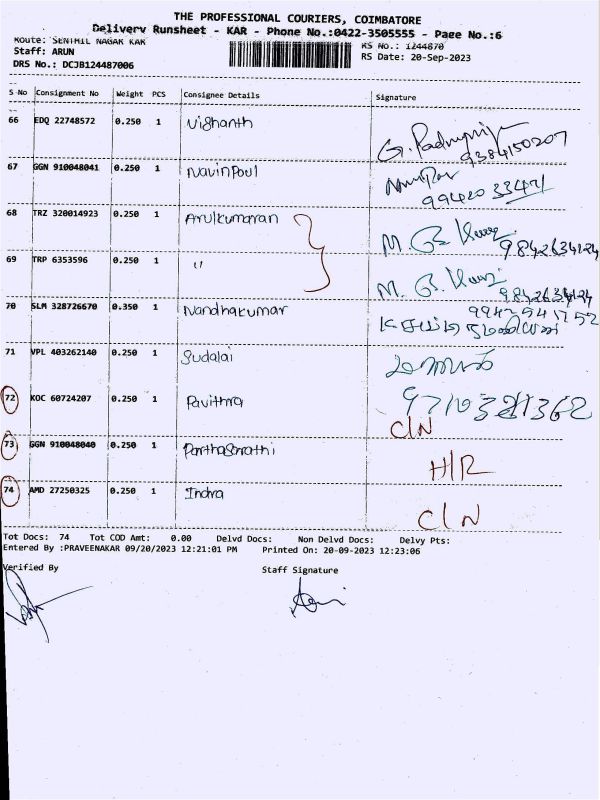 THE PROFESSIONAL COURIERS, COIMBATORE
Delivery Runsheet - KAR - Phone No.:0422-3505555 - Page No.:6
Route: SENTHIL NAGAR KAR
RS No.: 1244870
Staff: ARUN
RS Date: 20-Sep-2023
DRS No.: DCJB124487006
S No Consignment No Weight PCS Consignee Details Signature
66 EDQ 22748572 0.250 1 Vishanth
9384150207
67 GGN 910048041 0.250 1 Navin Poul
68 TRZ 320014923 0.250 1 Arulkumaran
9842634124
69 TRP 6353596 0.250 1 "
9842634124
70 SLM 328726670 0.350 1 Nandhakumar
71 VPL 403262140 0.250 1 Sudalai
72 KOC 60724207 0.250 1 Pavithra
C/N
73 GGN 910048040 0.250 1 Parthasarathi H/R
74 AMD 27250325 0.250 1 Indra C/N
Tot Docs: 74 Tot COD Amt: 0.00 Delvd Docs: Non Delvd Docs: Delvy Pts:
Entered By :PRAVEENAKAR 09/20/2023 12:21:01 PM Printed On: 20-09-2023 12:23:06
Verified By Staff Signature